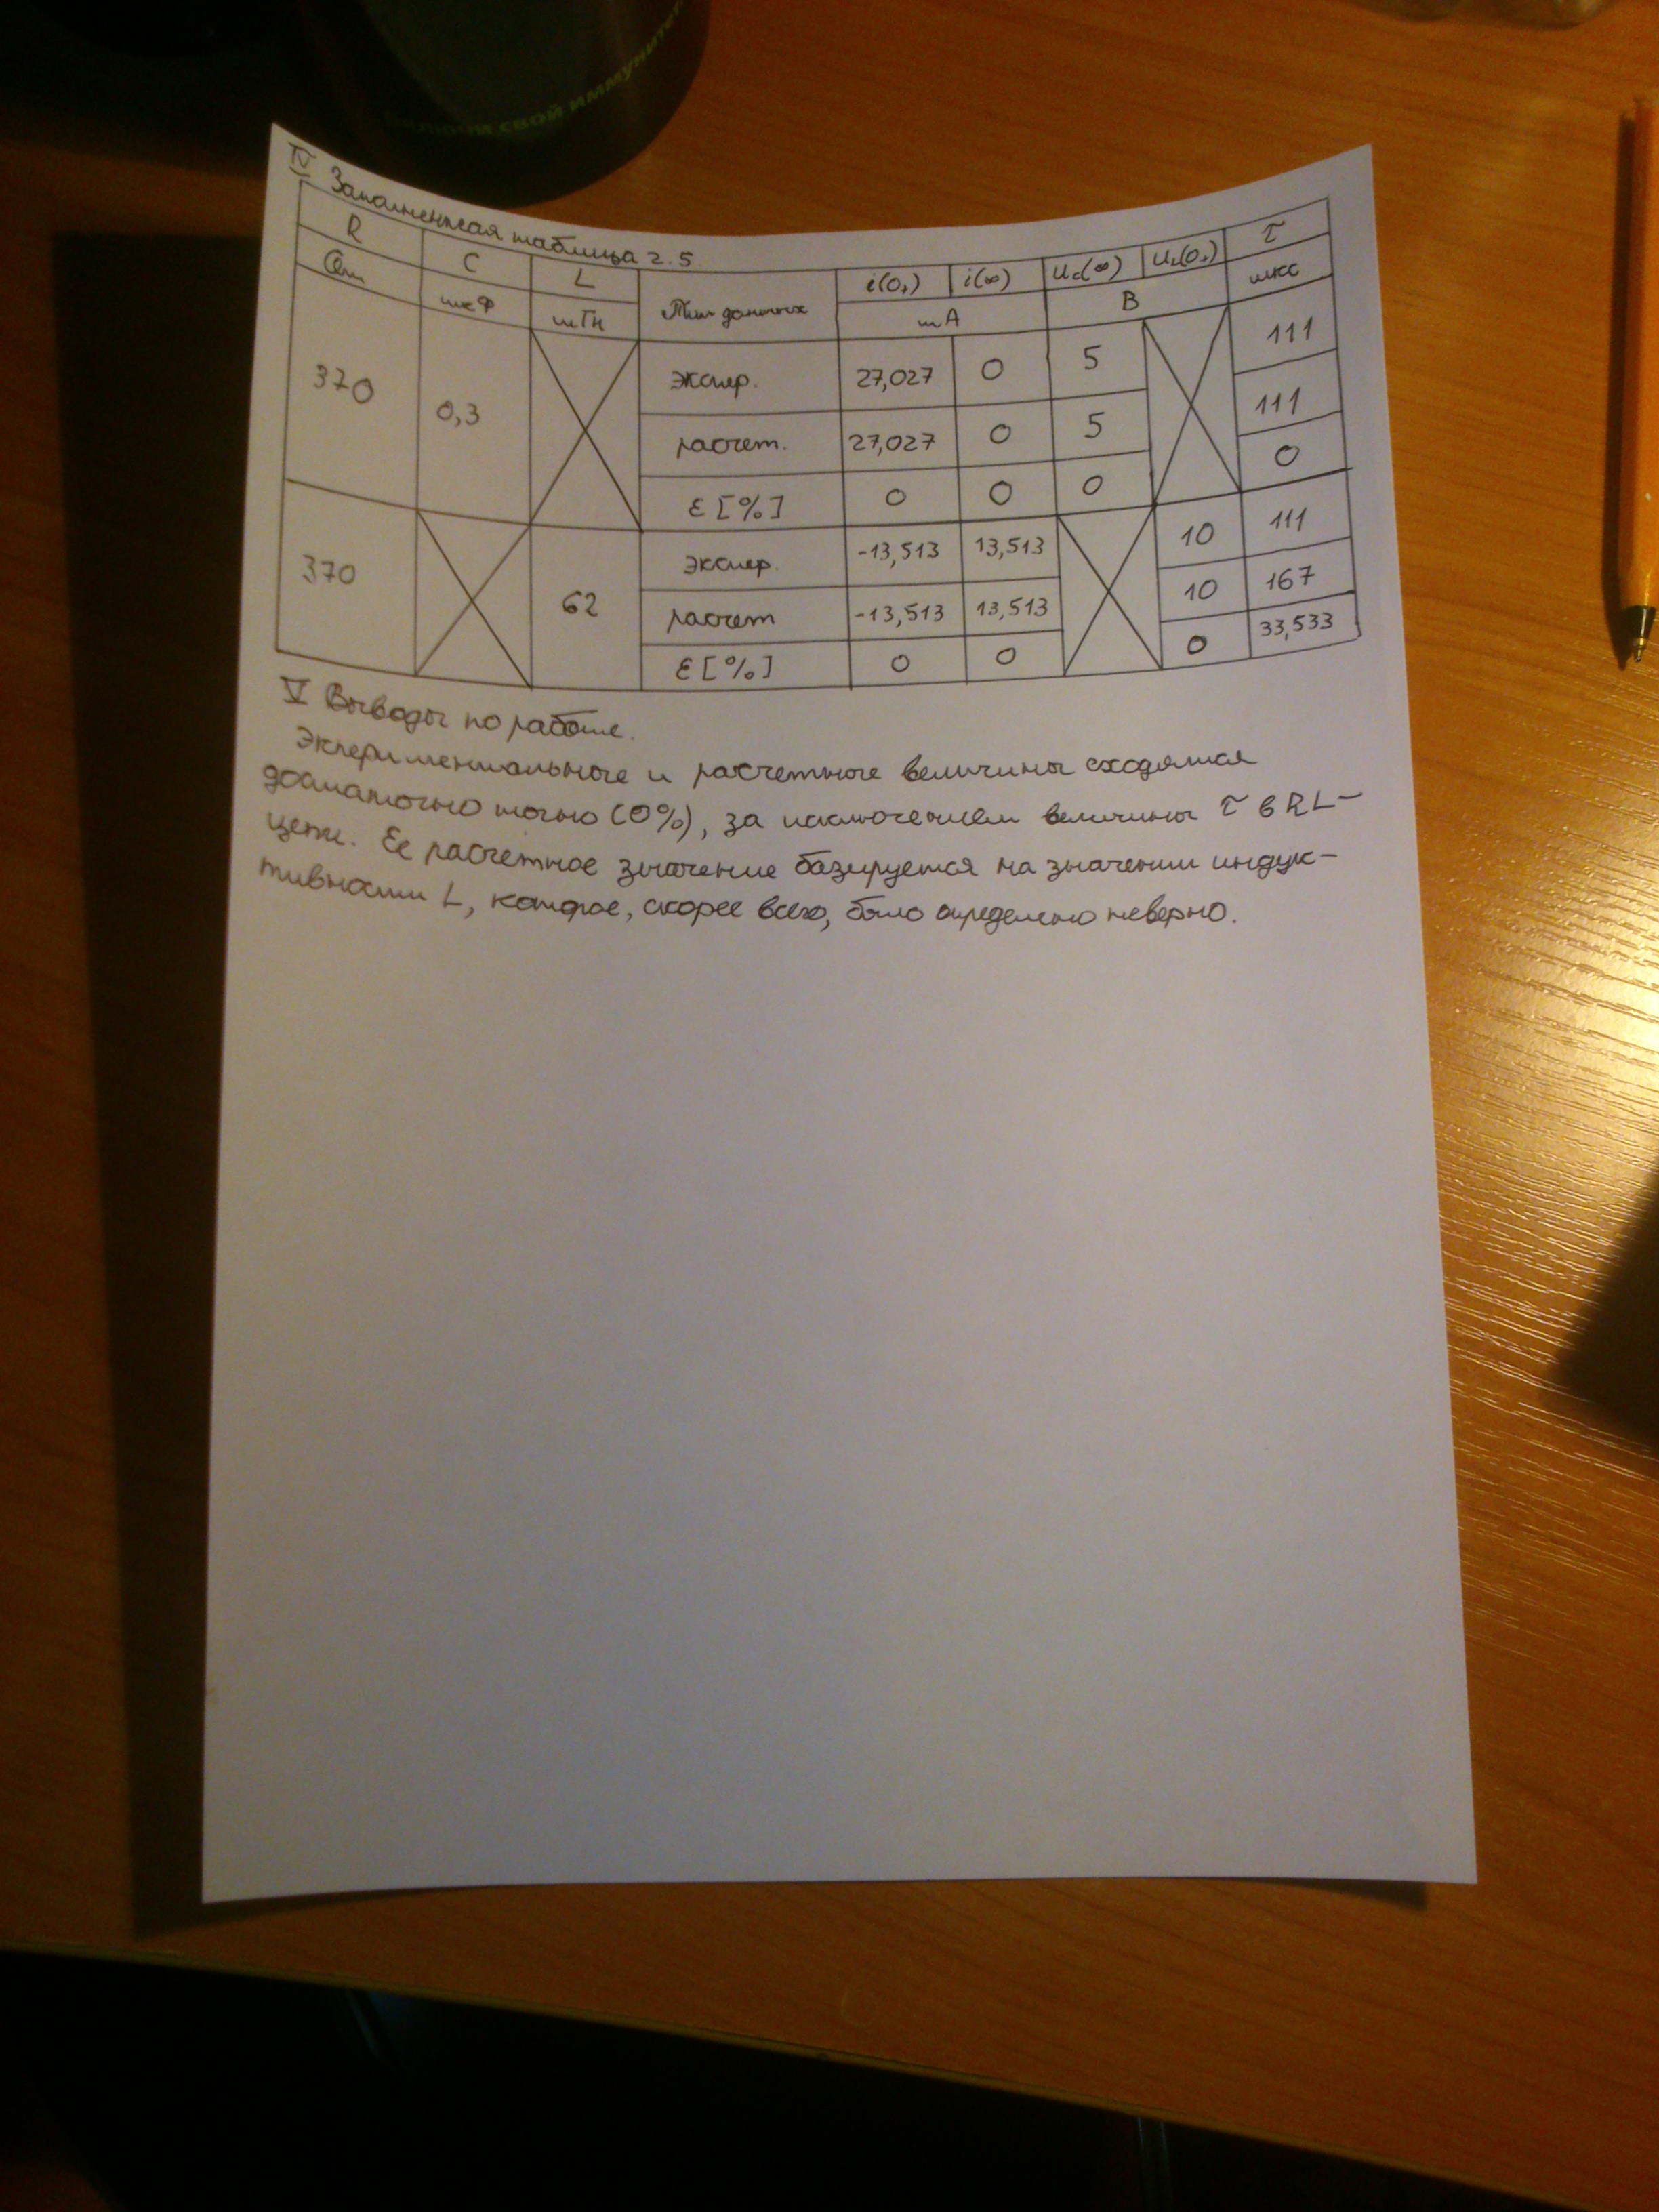 свой иммунитет
IV Заполненная таблица 2.5
R C L Тип данных i(0+) i(∞) Uc(∞) UL(0+) τ
Ом мкФ мГн мА В мкс
370 0,3 экспер. 27,027 0 5 111
расчет. 27,027 0 5 111
ε [%] 0 0 0 0
370 62 экспер. -13,513 13,513 10 111
расчет -13,513 13,513 10 167
ε [%] 0 0 0 33,533
V Выводы по работе.
Эксперементальные и расчетные величины сходятся
достаточно точно (0%), за исключением величины τ в RL-
цепи. Ее расчетное значение базируется на значении индук-
тивности L, которое, скорее всего, было определено неверно.